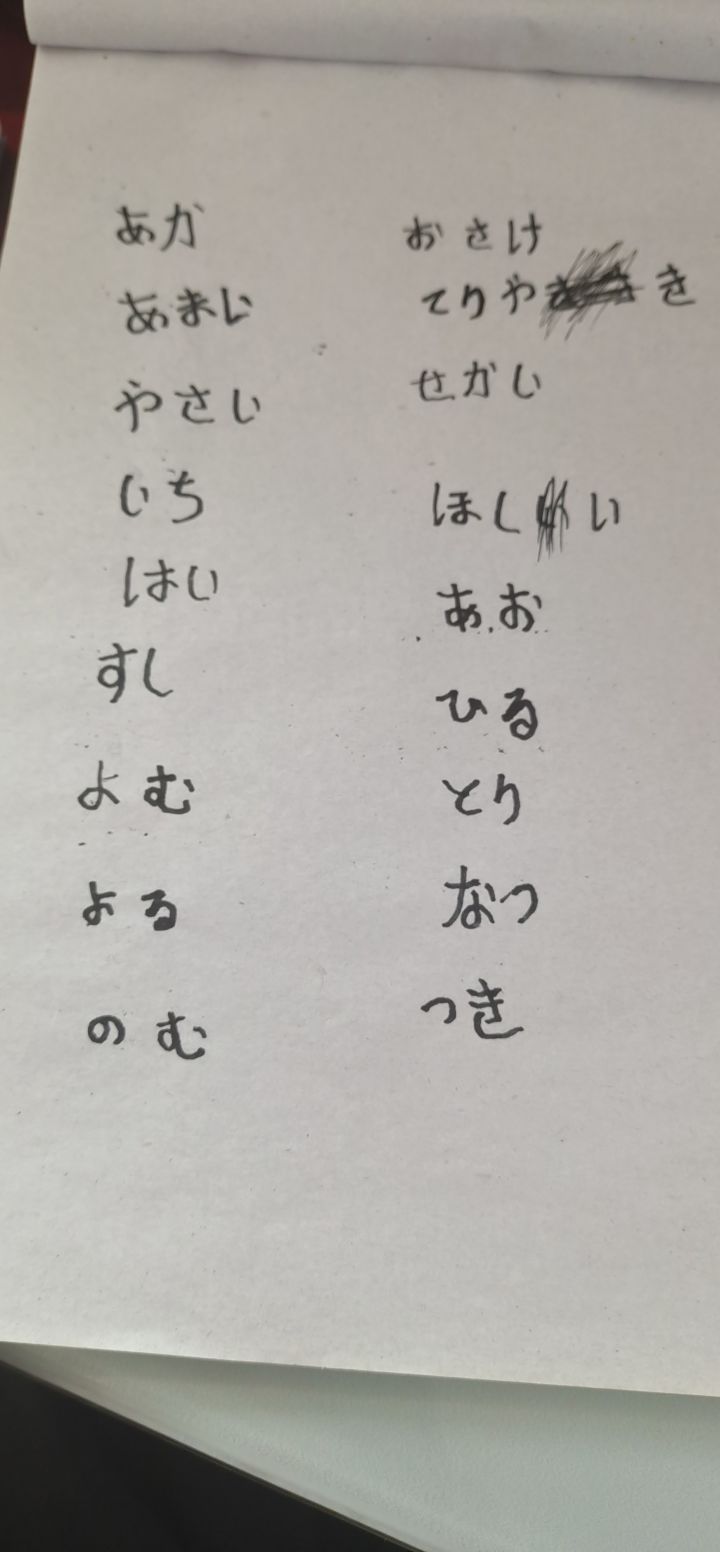 あか
あまい
やさい
いち
はい
すし
よむ
よる
のむ
おさけ
てりやき
せかい
ほしい
あお
ひる
とり
なつ
つき